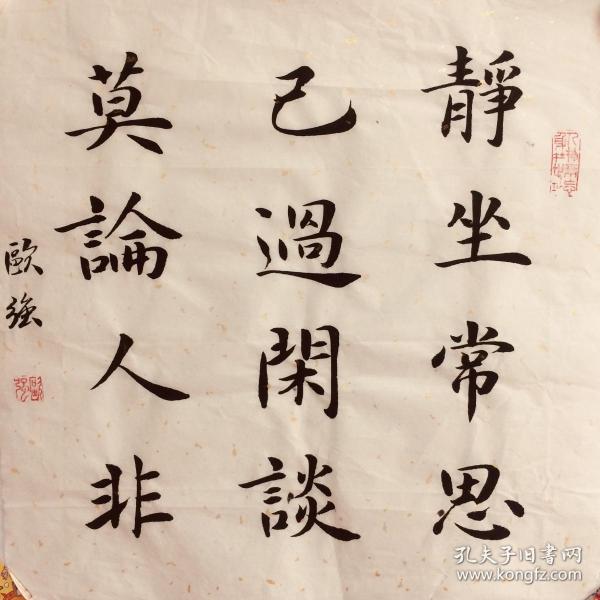 靜坐常思
己過閑談
莫論人非
歐強
孔夫子旧书网
www.kongfz.com